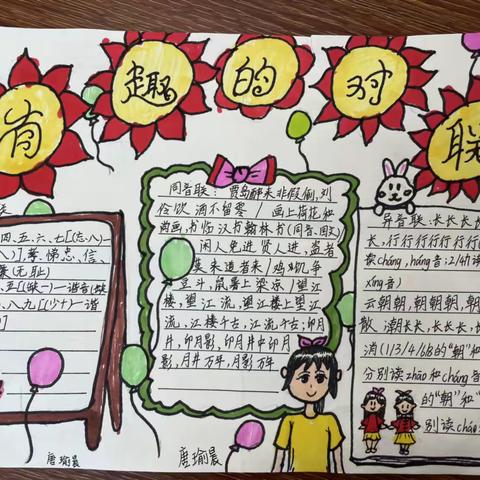 有趣的对联
四、五、六、七[(忘、八)一
)]孝、悌、忠、信、
(无耻)
五[(缺一)一谐音(缺
、八、九[(少十)一谐
同音联：贾岛醉来非假倒，刘
伶饮酒不留零 / 画上荷花和
尚画，书临汉书翰林书(同音、回文)
闲人免进贤人进，盗者
莫来道者来 / 鸡饥争
豆斗，鼠暑上梁凉 / 望江
楼，望江流，望江楼上望江
流，江楼千古，江流千古；印月
井，印月影，印月井中印月
影，月井万年，月影万年
异音联：长长长长
长，行行行行行行行
读cháng，háng音；2/4/7读
xíng音)
云朝朝，朝朝朝，朝朝
散 潮长长，长长长，长
消(1/3/4/6/8的“朝”和“
分别读zhāo和cháng音
的“朝”和“
别读cháo
唐瑜晨
唐瑜晨